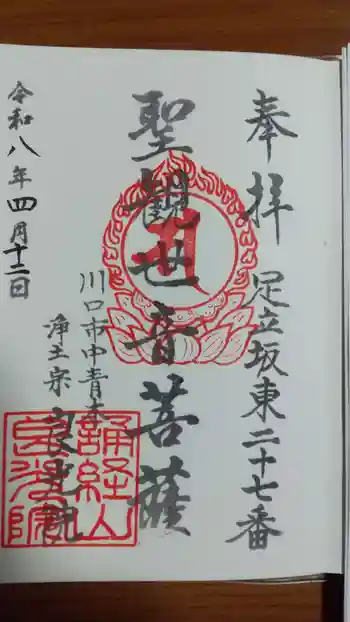 奉拝 足立坂東二十七番
聖観世音菩薩
川口市中青木
浄土宗 良
令和八年四月十二日
誦経山